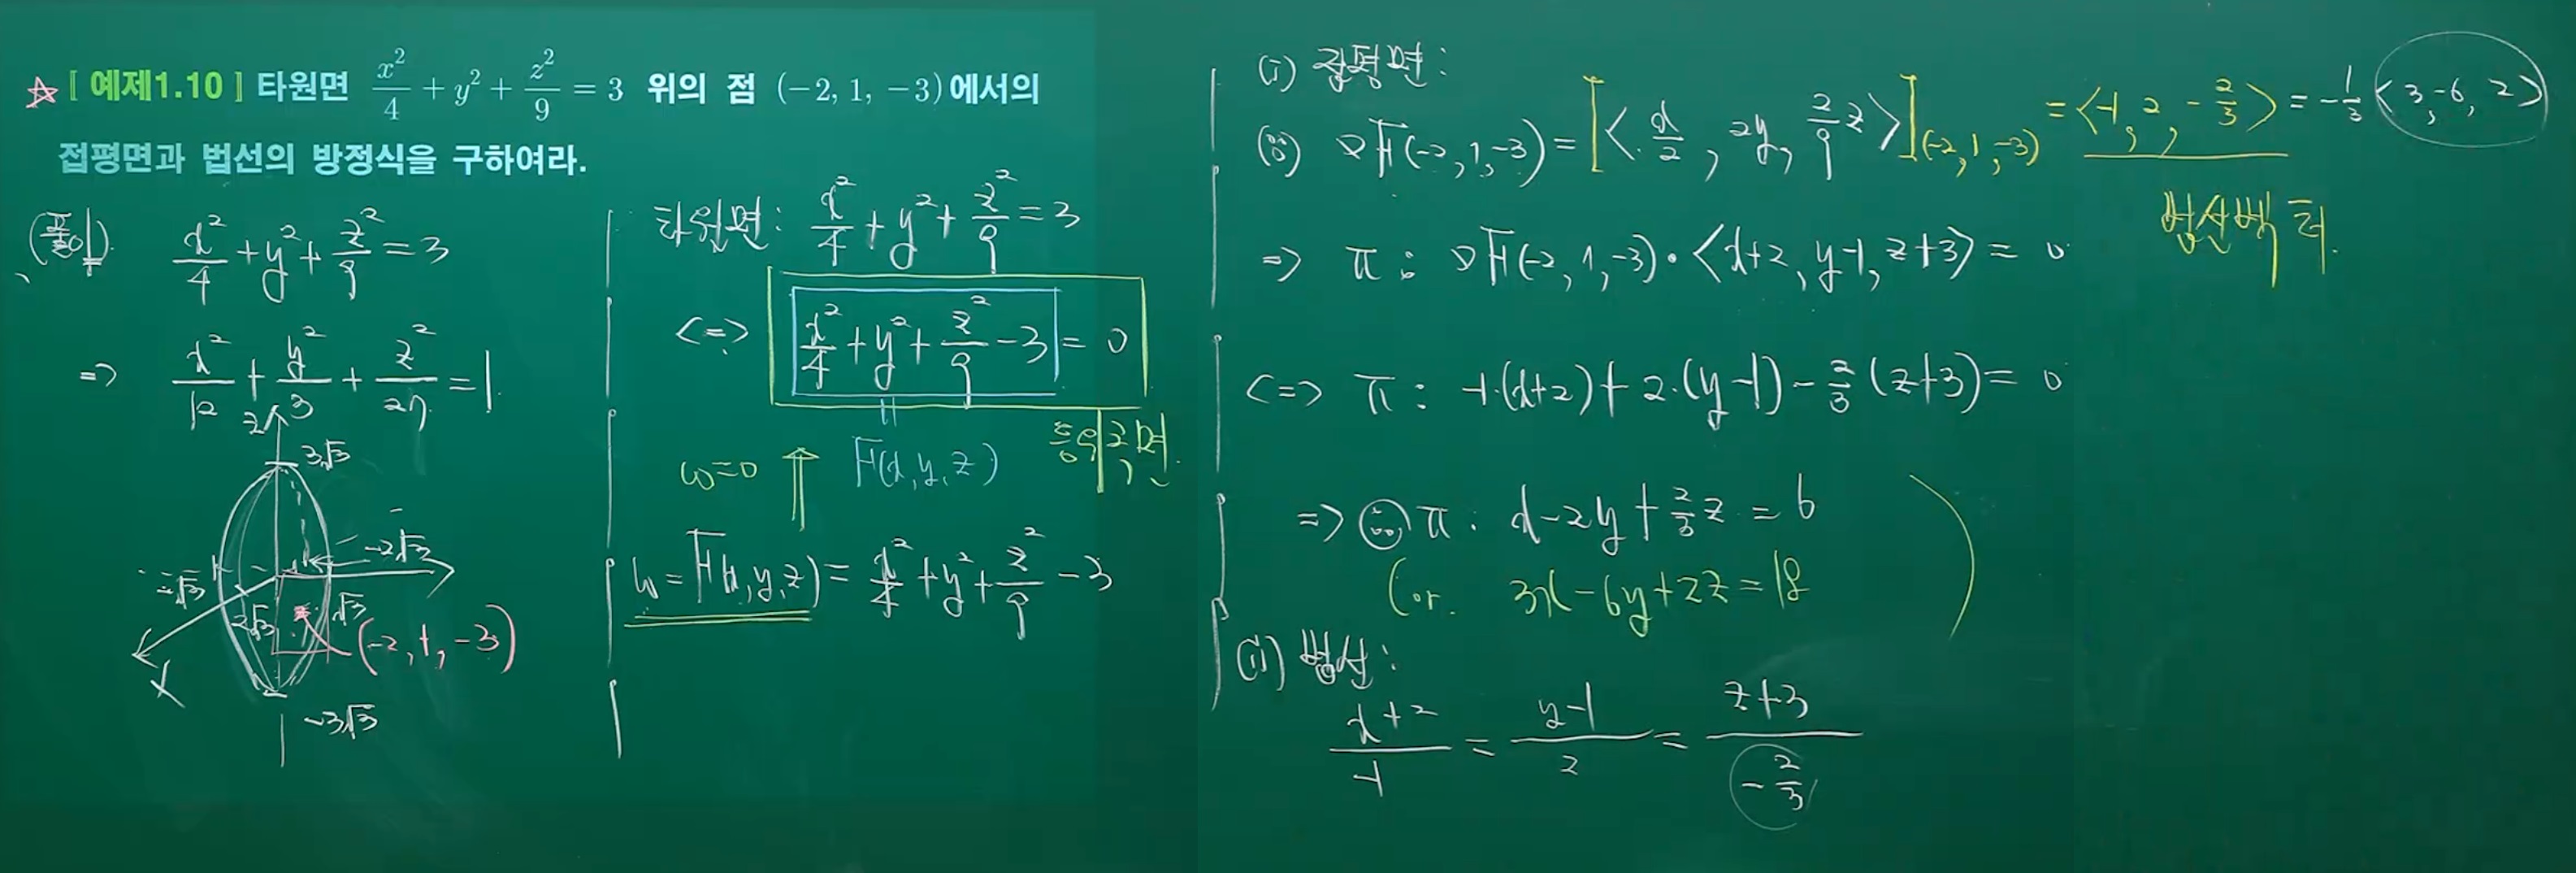 ☆ [ 예제1.10 ] 타원면 x²/4 + y² + z²/9 = 3 위의 점 (-2, 1, -3)에서의
접평면과 법선의 방정식을 구하여라.
(풀이) x²/4 + y² + z²/9 = 3
=> x²/12 + y²/3 + z²/27 = 1
z
3√3
-2√3
-√3
2√3
√3
(-2, 1, -3)
x
-3√3
타원면: x²/4 + y² + z²/9 = 3
<=> x²/4 + y² + z²/9 - 3 = 0
w=0
F(x, y, z)
등위곡면
w = F(x, y, z) = x²/4 + y² + z²/9 - 3
(i) 접평면:
∇F(-2, 1, -3) = [<x/2, 2y, 2/9 z>](-2, 1, -3) = <-1, 2, -2/3> = -1/3 <3, -6, 2>
법선벡터.
=> π : ∇F(-2, 1, -3)·<x+2, y-1, z+3> = 0
<=> π : -1·(x+2) + 2·(y-1) - 2/3 (z+3) = 0
=> π : x - 2y + 2/3 z = 6
(or. 3x - 6y + 2z = 18 )
(ii) 법선:
(x+2)/-1 = (y-1)/2 = (z+3)/(-2/3)